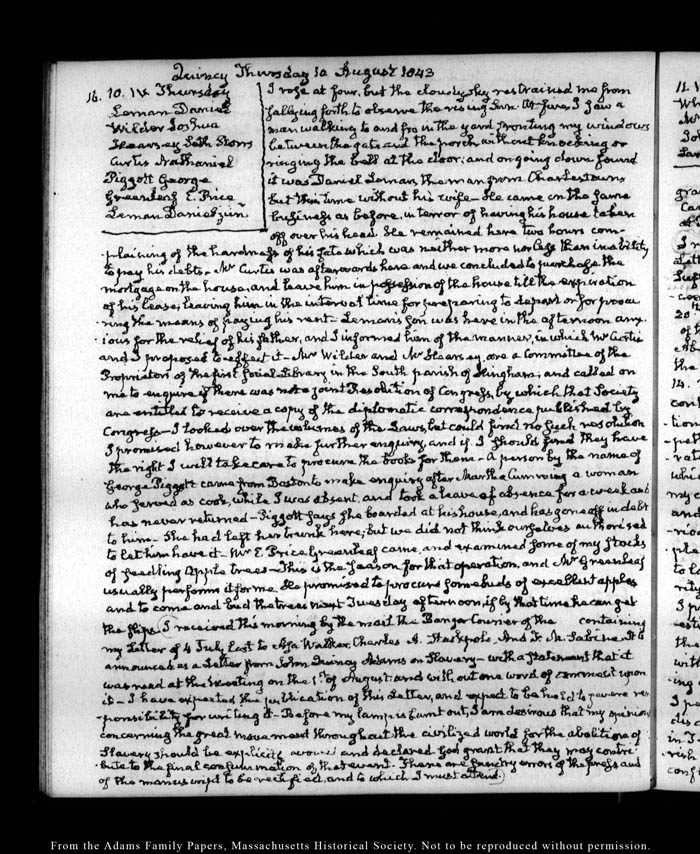 Quincy Thursday 10 August 1843
16. 10. IV. Thursday
Leman Daniel
Wilder Joshua
Hearsey Seth Storrs
Curtis Nathaniel
Piggott George
Greenleaf E. Price
Leman Daniel jun.
I rose at four, but the cloudy sky restrained me from
sallying forth to observe the rising Sun. At five I saw a
man walking to and fro in the yard fronting my windows
between the gate and the porch, without knocking or
ringing the bell at the door; and on going down found
it was Daniel Leman, the man from Charlestown,
but this time without his wife. He came on the same
business as before, in terror of having his house taken
off over his head. He remained here two hours com-
-plaining of the hardness of his fate which was neither more nor less than inability
to pay his debts. Mr Curtis was afterwards here and we concluded to purchase the
mortgage on the house, and leave him in possession of the house till the expiration
of his lease; leaving him in the interval time for preparing to depart or for procu-
-ring the means of paying his rent. Leman's son was here in the afternoon anx-
-ious for the relief of his father, and I informed him of the manner, in which Mr Curtis
and I proposed to effect it— Mr Wilder and Mr Hearsey, are a Committee of the
Proprietors of the first social Library in the South parish of Hingham; and called on
me to enquire if there was not a joint Resolution of Congress, by which that Society
are entitled to receive a copy of the diplomatic correspondence published by
Congress— I looked over the volumes of the Laws, but could find no such resolution
I promised however to make further enquiry, and if I should find they have
the right I will take care to procure the book for them— A person by the name of
George Piggott came from Boston to make enquiry after Martha Cumming a woman
who served as cook, while I was absent, and took a leave of absence for a week and
has never returned— Piggott says she boarded at his house, and has gone off in debt
to him— She had left her trunk here; but we did not think ourselves authorised
to let him have it— Mr E. Price Greenleaf came, and examined some of my stocks
of seedling Apple trees— This is the season for that operation, and Mr Greenleaf
usually performs it for me. He promised to procure some buds of excellent apples
and to come and bud the trees next Tuesday afternoon, if by that time he can get
the slips. I received this morning by the mail the Bangor Courier of the containing
my Letter of 4 July last to Asa Walker, Charles A. Stackpole, And F. M. Sabine. It is
announced as a Letter from John Quincy Adams on Slavery— with a statement that it
was read at the Meeting on the 1st of August and without one word of comment upon
it— I have expected the publication of this Letter, and expect to be held to severe res-
-ponsibility for writing it— Before my lamp is burnt out, I am desirous that my opinions
concerning the great movement throughout the civilized world for the abolition of
Slavery should be explicitly avowed and declared. God grant that they may contri-
-bute to the final consummation of that event. There are sundry errors of the press and
of the manuscript to be rectified, and to which I must attend.
From the Adams Family Papers, Massachusetts Historical Society. Not to be reproduced without permission.